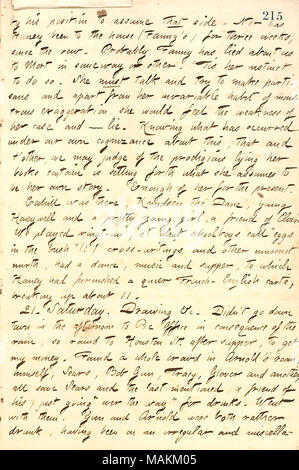 215
by his position to assume that side. Nor has
Haney been to the house (Fanny's) for three weeks,
since the row. Probably Fanny has lied about us
to Mort in some way or other. Tis her instinct
to do so. She must talk and try to make parti-
sans and apart from her invariable habit of mons-
trous exaggeration she would feel the weakness of
her case and — lie. Knowing what has occurred
under our own cognizance about this, that and
t'other, we may judge of the prodigious lying her
books contain in setting forth what she assumes to
be her own story. Enough of her for the present.
Cahill was there, Knudsen the Dane, young
Honeywell and a pretty young girl, a friend of
We played ring what schoolboys call "eggs
in the bush" !!! cross-writings and other innocent
mirth, had a dance, music and supper, to which
Haney had furnished a queer French-English carte,
breaking up about 11.
21. Saturday. Drawing &c. Didn't go down
town in the afternoon to Pic Office in consequence of the
rain, so round to Houston St. after supper, to get
my money. Found a whole crowd in Arnold's room
himself, Sears, Bob Gun, Tracy, Glover and another
all save Sears and the last mentioned, (a friend of
his,) just going "over the way" for drinks. Went
with them. Gun and Arnold were both rather
drunk, having been on an irregular and miscella-
alamy
Image ID: MAKM05
www.alamy.com